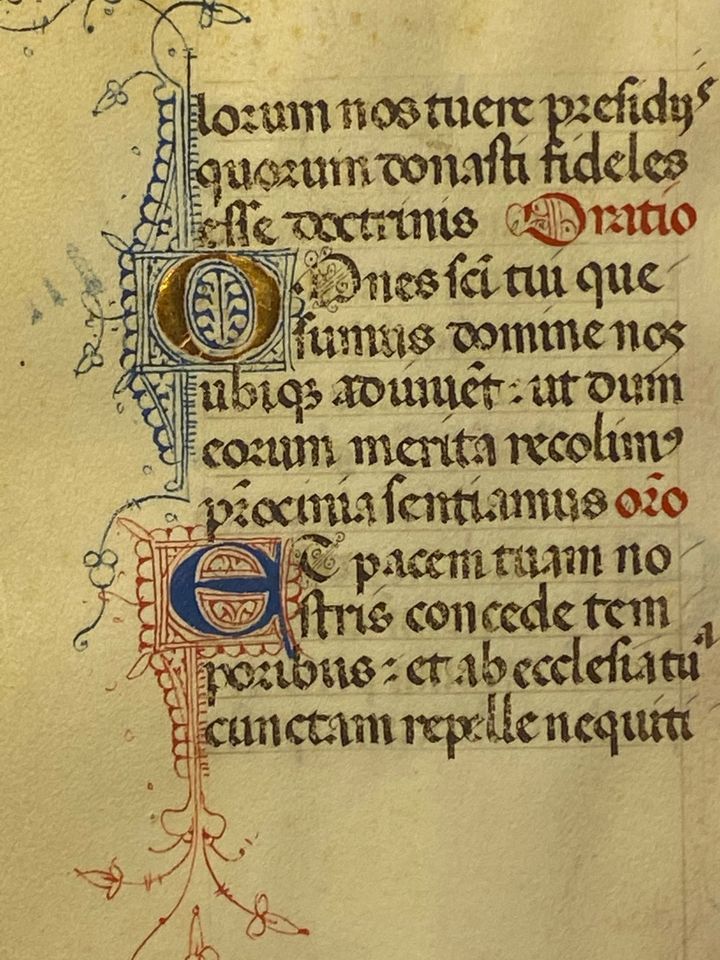 lorum nos tuere presidijs
quorum donasti fideles
esse doctrinis Oratio
Omnes scī tui que
sumus domine nos
ubiqꝫ adiuuēt : ut dum
eorum merita recolimꝰ
pr̄ocinia sentiamus or̄o
ET pacem tuam no
stris concede tem
poribus : et ab ecclesia tuᵃ
cunctam repelle nequiti